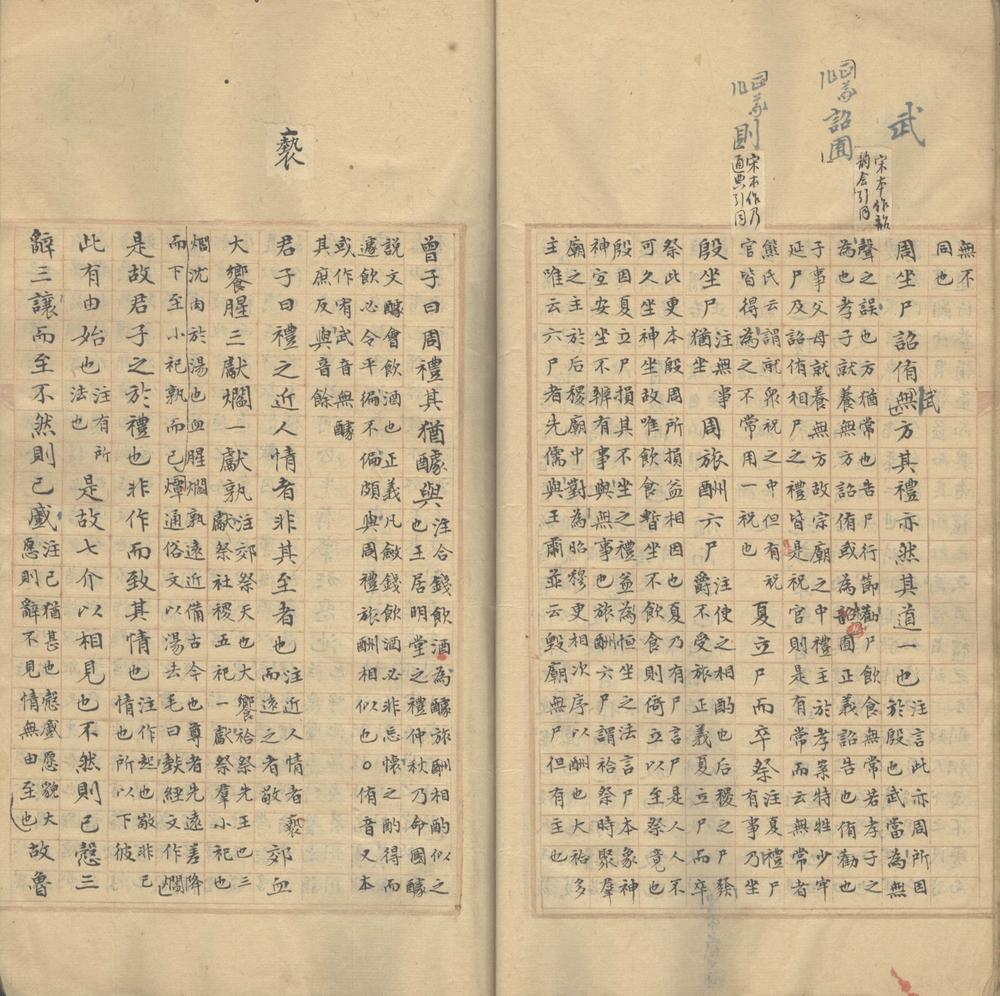 武
宋本作韶
韵會引同
詔囿
則
宋本作乃
通典引同
無不
同也
周坐尸詔侑無方其禮亦然其道一也
武
注言此亦周所因
於殷也武當為無
聲之誤也方猶常也告尸行節勸尸飲食無常若孝子之
為也孝子就養無方詔侑或為韶囿正義詔告也侑勸也
子事父母就養無方故宗廟之中禮主於孝案特牲少牢
延尸及詔侑相尸之禮皆是祝官則是有常而云無常者
熊氏云謂就衆祝之中但有祝
官皆得為之不常用一祝也
夏立尸而卒祭
注夏禮尸
有事乃坐
殷坐尸
注無事
猶坐
周旅酬六尸
注使之相酌也后稷之發
爵不受旅正義夏立尸而卒
祭此更本殷周所損益相因也夏乃有尸言是人人不
可久坐神坐故唯飲食暫坐不飲食則倚立以至祭竟也
殷因夏立尸損其不坐之禮益為恒坐之法言尸本象神
神宜安坐不辨有事與無事也旅酬六尸謂祫祭時聚羣
廟之主於后稷廟中對為昭穆更相次序以酬也大祫多
主唯云六尸者先儒與王肅並云毀廟無尸但有主也
褻
曾子曰周禮其猶醵與
注合錢飲酒為醵旅酬相酌似之
也王居明堂之禮仲秋乃命國醵
說文醵會飲酒也正義凡斂錢飲酒必非忌懷之酌得而
遽飲必令平徧不偏頗與周禮旅酬相似也○侑音又本
或作宥武音無醵
其庶反與音餘
君子曰禮之近人情者非其至者也
注近人情者褻
而遠之者敬
郊血
大饗腥三獻爓一獻孰
注郊祭天也大饗祫祭先王也三
獻祭社稷五祀一獻祭羣小祀也
爓沈肉於湯也血腥爓孰遠近備古今也尊者先遠差降
而下至小祀孰而已燖通俗文以湯去毛曰經文作爓
是故君子之於禮也非作而致其情也
注作起也敬非己
情也所以下彼
此有由始也
注有所
法也
是故七介以相見也不然則已慤三
辭三讓而至不然則已蹙
注已猶甚也慤蹙愿貌大
愿則辭不見情無由至也
故魯